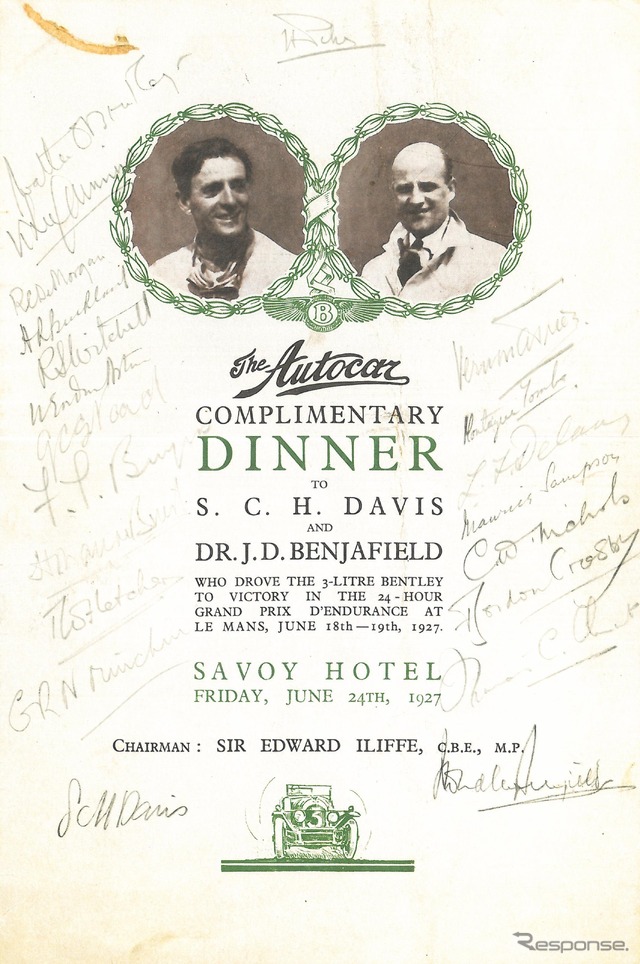 B
The Autocar
COMPLIMENTARY
DINNER
TO
S. C. H. DAVIS
AND
DR. J. D. BENJAFIELD
WHO DROVE THE 3-LITRE BENTLEY
TO VICTORY IN THE 24-HOUR
GRAND PRIX D'ENDURANCE AT
LE MANS, JUNE 18th—19th, 1927.
SAVOY HOTEL
FRIDAY, JUNE 24TH, 1927
CHAIRMAN: SIR EDWARD ILIFFE, C.B.E., M.P.
Walter O Bentley
Morgan
R S Witchell
Fletcher
Montague Tombs
Maurice Sampson
Gordon Crosby
S C H Davis
3
Response.